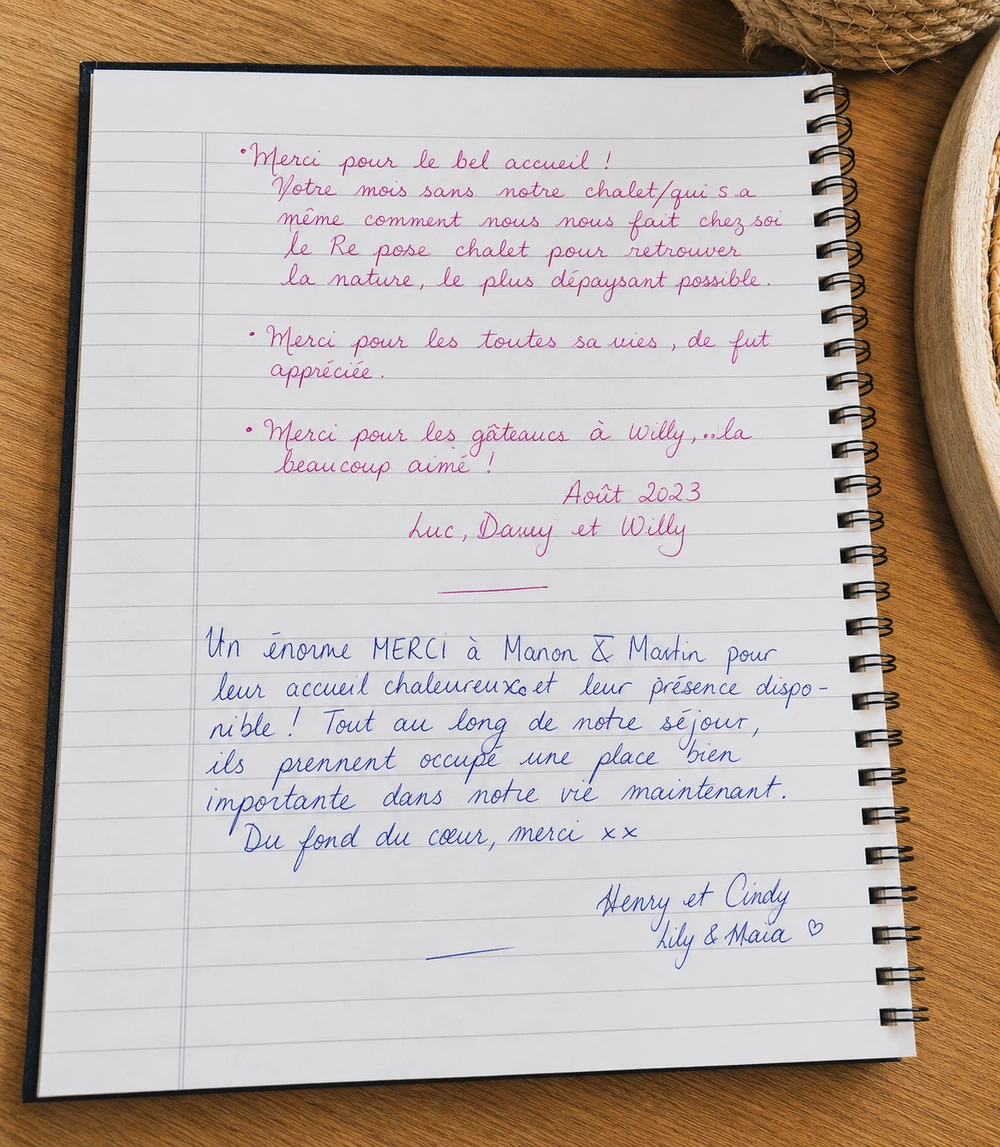 • Merci pour le bel accueil !
Votre mois sans notre chalet/qui s a
même comment nous nous fait chez soi
le Re pose chalet pour retrouver
la nature, le plus dépaysant possible.
• Merci pour les toutes sa vies, de fut
appréciée.
• Merci pour les gâteaucs à Willy,..la
beaucoup aimé !
Août 2023
Luc, et Willy
Un énorme MERCI à Manon & Martin pour
leur accueil chaleureux et leur présence dispo-
nible ! Tout au long de notre séjour,
ils prennent occupé une place bien
importante dans notre vie maintenant.
Du fond du cœur, merci xx
Henry et Cindy
Lily & Maia ♡